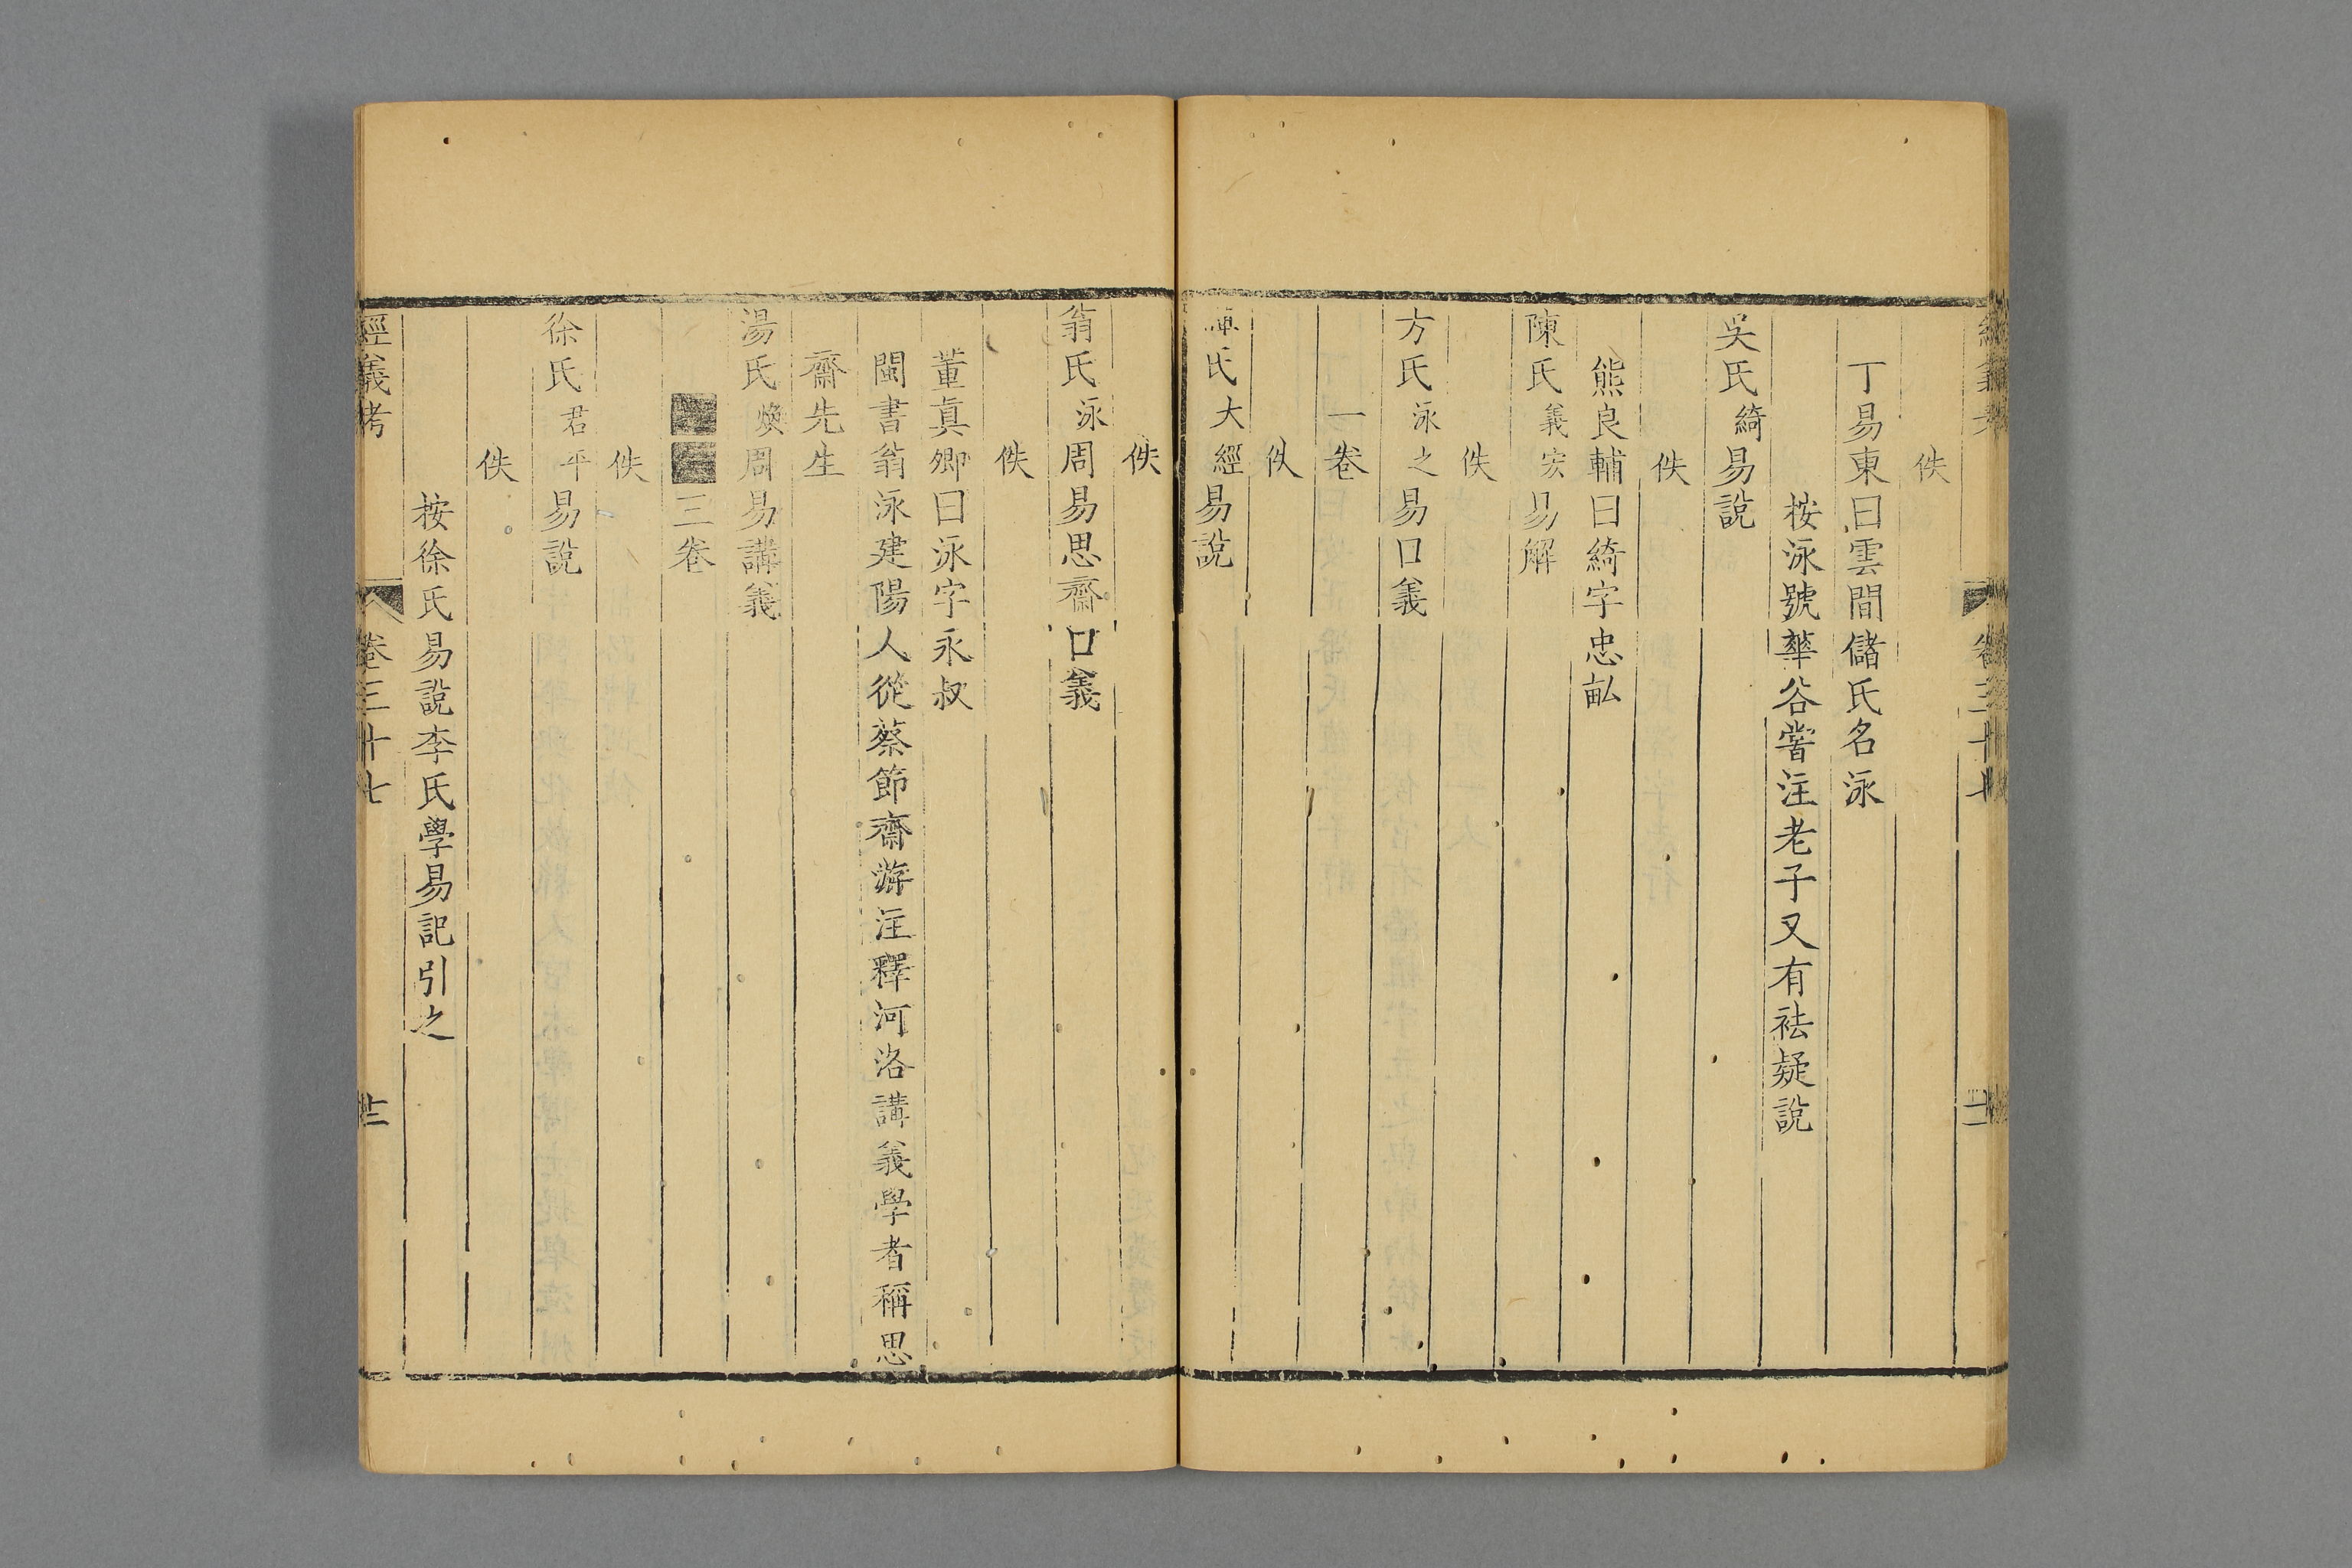 佚
丁易東曰雲間儲氏名泳
按泳號華谷嘗注老子又有袪疑說
吳氏綺易說
佚
熊良輔曰綺字忠畆
陳氏義宏易解
佚
方氏泳之易口義
一卷
佚
氏大經易說
佚
翁氏泳周易思齋口義
佚
董真卿曰泳字永叔
閩書翁泳建陽人從蔡節齋游注釋河洛講義學者稱思
齋先生
湯氏煥周易講義
三卷
佚
徐氏君平易說
佚
按徐氏易說李氏學易記引之
經義考 卷三十七